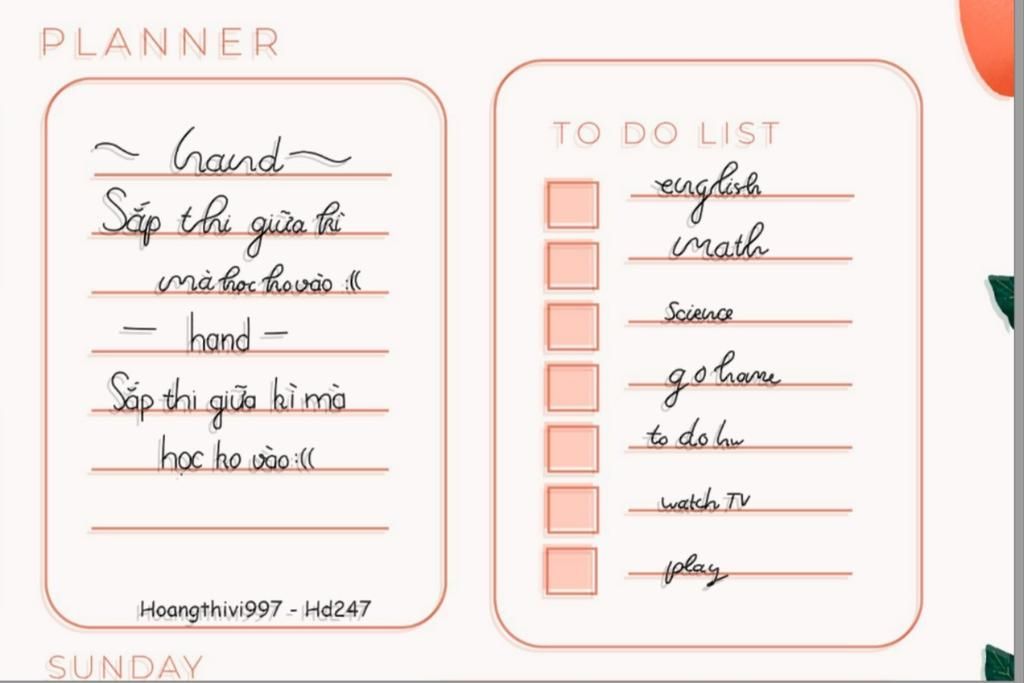 PLANNER
~ hand ~
Sắp thi giữa kì
mà học ko vào :((
— hand —
Sắp thi giữa kì mà
học ko vào :((
Hoangthivi997 - Hd247
SUNDAY
TO DO LIST
english
math
Science
go home
to do hw
watch TV
play